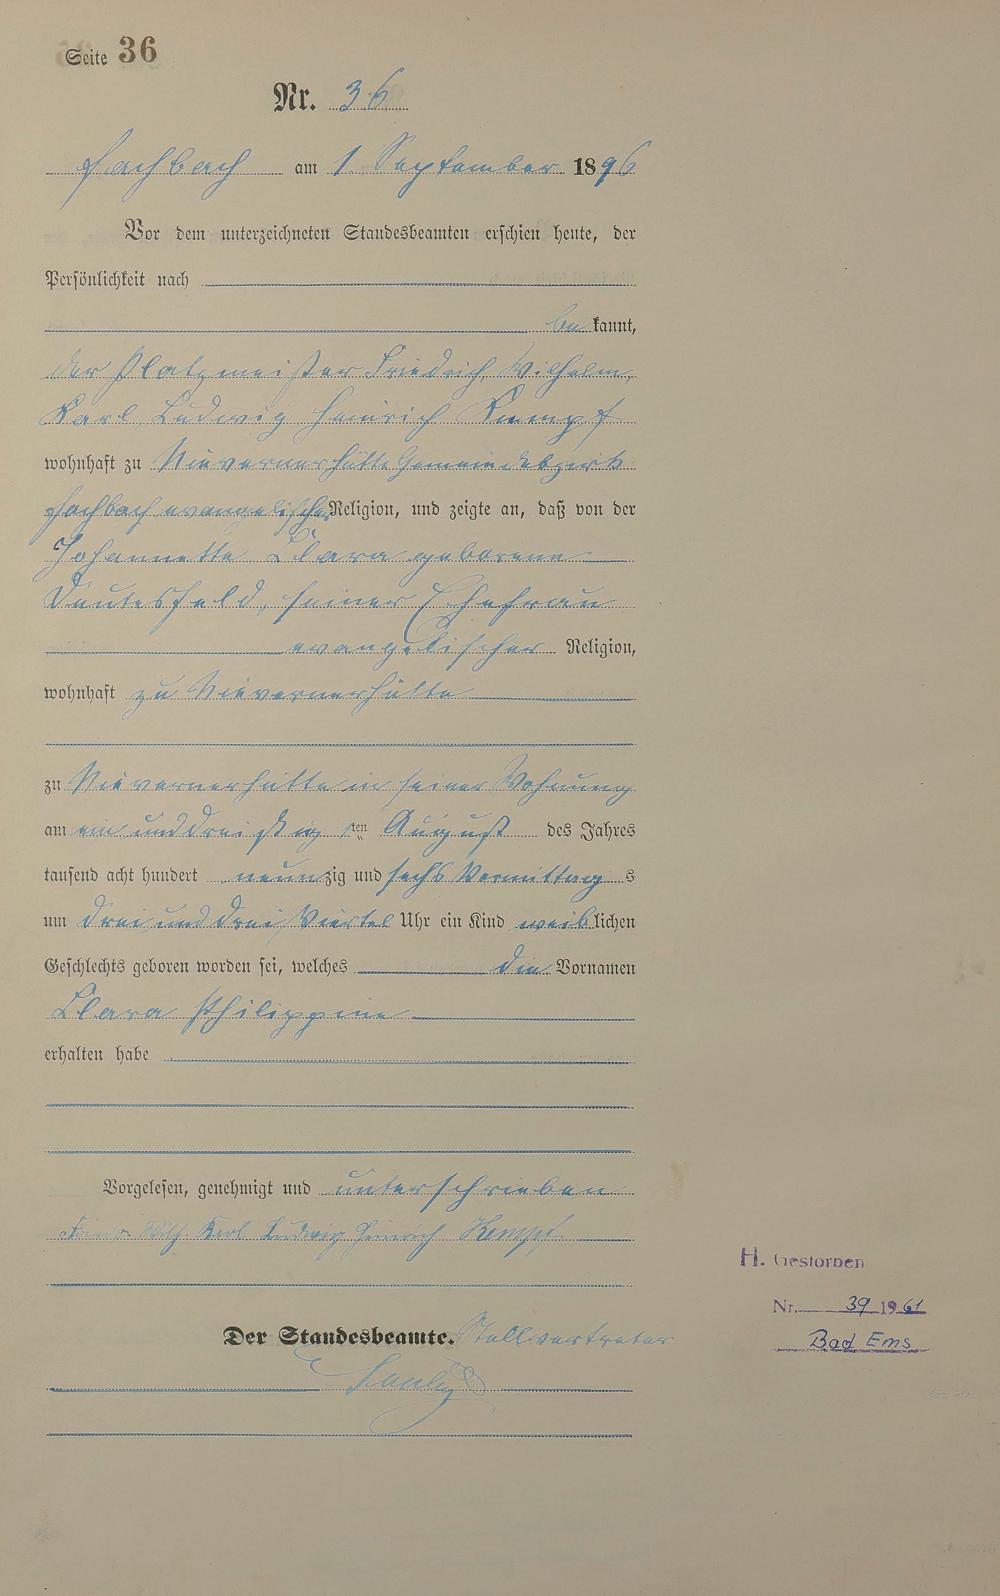 Seite 36
Nr. 36
Fachbach am 1. September 1896
Vor dem unterzeichneten Standesbeamten erschien heute, der
Persönlichkeit nach
bekannt,
der Platzmeister Friedrich, Wilhelm,
Karl, Ludwig Heinrich Kempf
wohnhaft zu Nievernerhütte Gemeindebezirk
Fachbach evangelischer Religion, und zeigte an, daß von der
Johannette Clara geborene
Dautesfeld, seiner Ehefrau
evangelischer Religion,
wohnhaft zu Nievernerhütte
zu Nievernerhütte in seiner Wohnung
am ein und dreißigsten August des Jahres
tausend acht hundert neunzig und sechs Vormittags
um drei und drei Viertel Uhr ein Kind weiblichen
Geschlechts geboren worden sei, welches die Vornamen
Clara Philippine
erhalten habe
Vorgelesen, genehmigt und unterschrieben
Wilh. Karl Ludwig Heinrich Kempf
Der Standesbeamte. Stellvertreter
H. Gestorben
Nr. 39 1961
Bad Ems